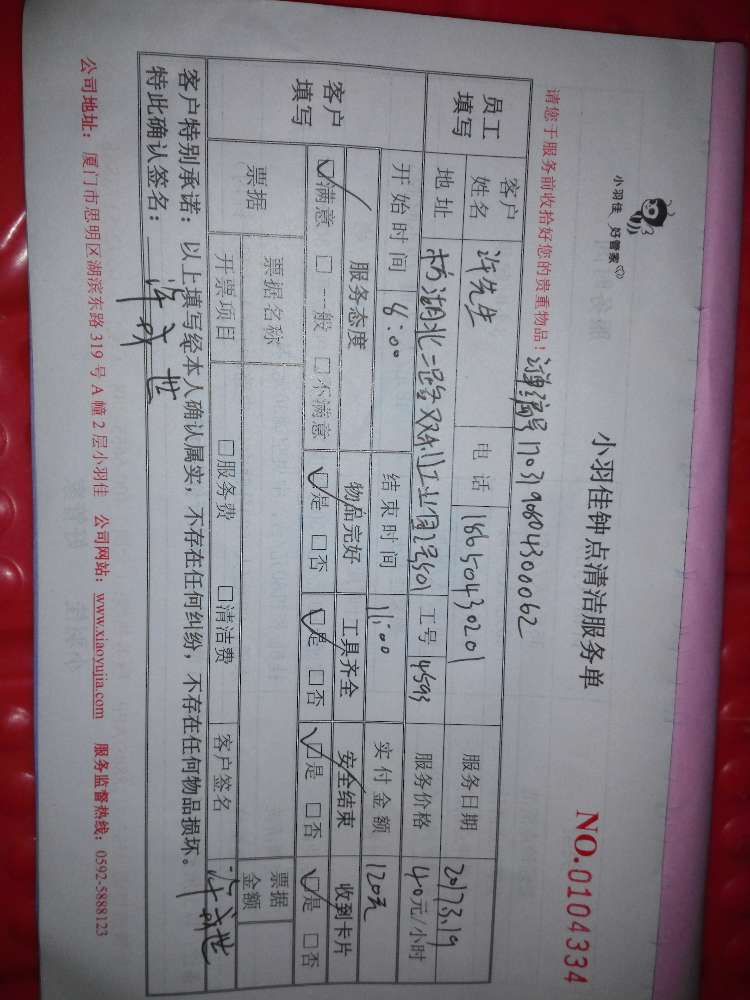 小羽佳 好管家
小羽佳钟点清洁服务单
NO.0104334
请您于服务前收拾好您的贵重物品！ 1703190804300062
员工填写 客户姓名 许先生 电话 18650430201 服务日期 2017.3.19
地址 工号 4593 服务价格 40元/小时
客户填写 开始时间 8:00 结束时间 11:00 实付金额 120元
服务态度 物品完好 工具齐全 安全结束 收到卡片
☑满意 □一般 □不满意 ☑是 □否 ☑是 □否 ☑是 □否 ☑是 □否
票据 票据名称 票据金额
开票项目 □服务费 □清洁费 客户签名
客户特别承诺：以上填写经本人确认属实，不存在任何纠纷，不存在任何物品损坏。
特此确认签名：
公司地址：厦门市思明区湖滨东路 319 号 A 幢 2 层小羽佳 公司网站：www.xiaoyujia.com 服务监督热线：0592-5888123